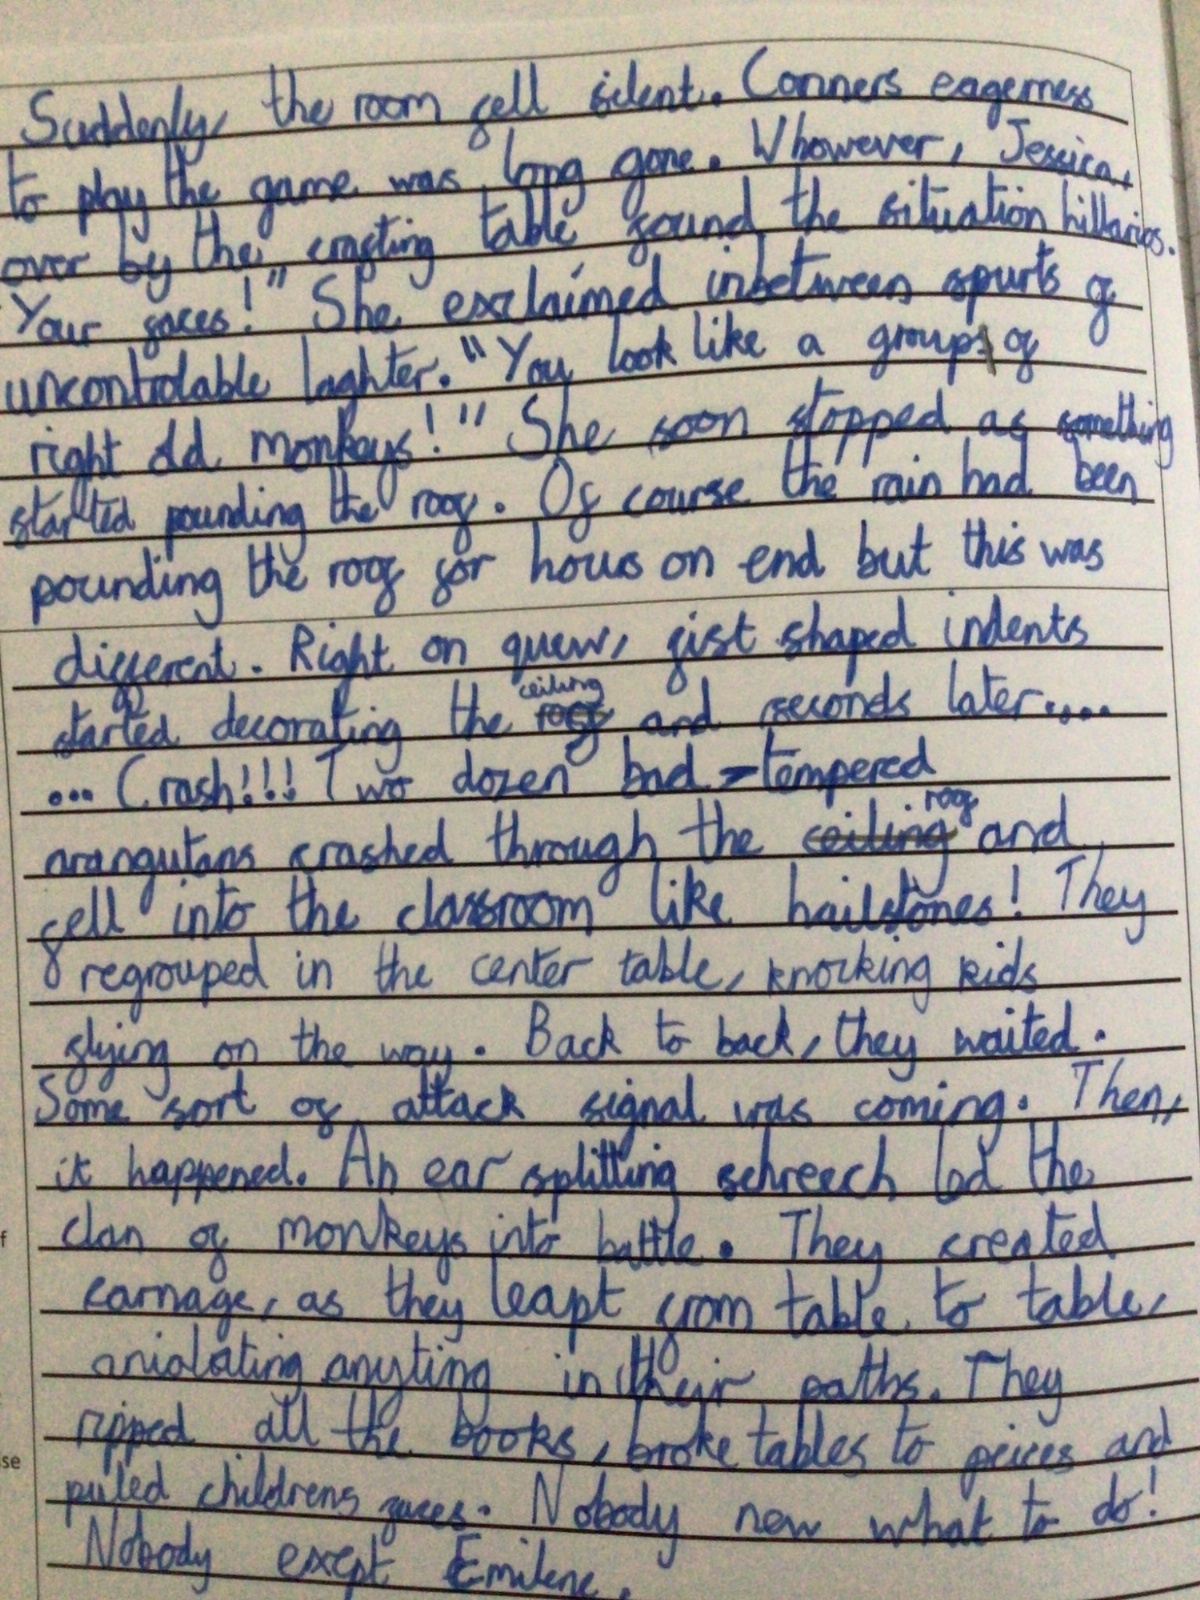 Suddenly, the room fell silent. Conners eagerness
to play the game was long gone. Whowever, Jessica,
over by the crafting table found the situation hillarios.
"Your faces!" She exclaimed inbetween spurts of
uncontrolable laghter. "You look like a group of
right old monkeys!" She soon stopped as something
started pounding the roof. Of course the rain had been
pounding the roof for hours on end but this was
different. Right on quew, fist shaped indents
started decorating the ceiling and seconds later....
... Crash!!! Two dozen bad-tempered
orangutans crashed through the roof and
fell into the classroom like hailstones! They
regrouped in the center table, knocking kids
flying on the way. Back to back, they waited.
Some sort of attack signal was coming. Then,
it happened. An ear splitting schreech led the
clan of monkeys into battle. They created
carnage, as they leapt from table to table,
aniolating anyting in their paths. They
ripped all the books, broke tables to peices and
pulled childrens faces. Nobody new what to do!
Nobody exept Emilene.
f
se